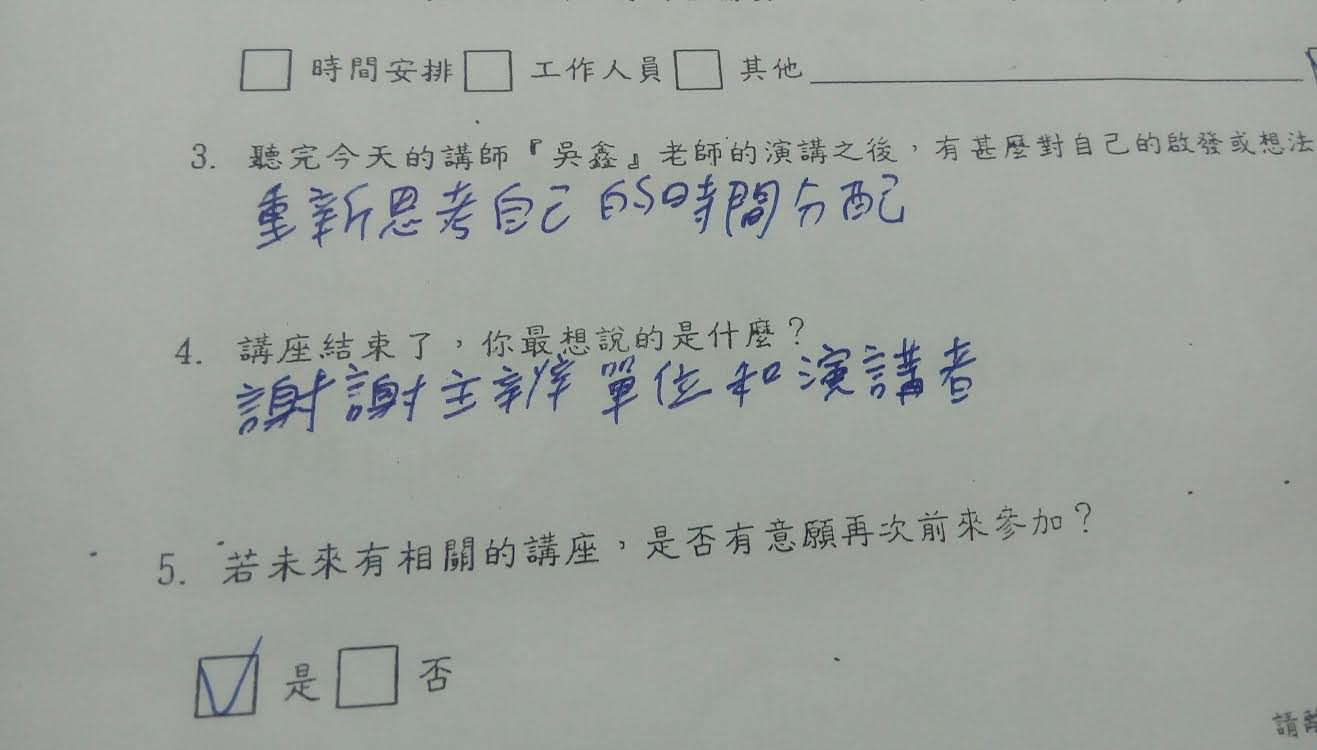 時間安排 工作人員 其他
3. 聽完今天的講師『吳鑫』老師的演講之後，有甚麼對自己的啟發或想法
重新思考自己的時間分配
4. 講座結束了，你最想說的是什麼？
謝謝主辦單位和演講者
5. 若未來有相關的講座，是否有意願再次前來參加？
是 否
請